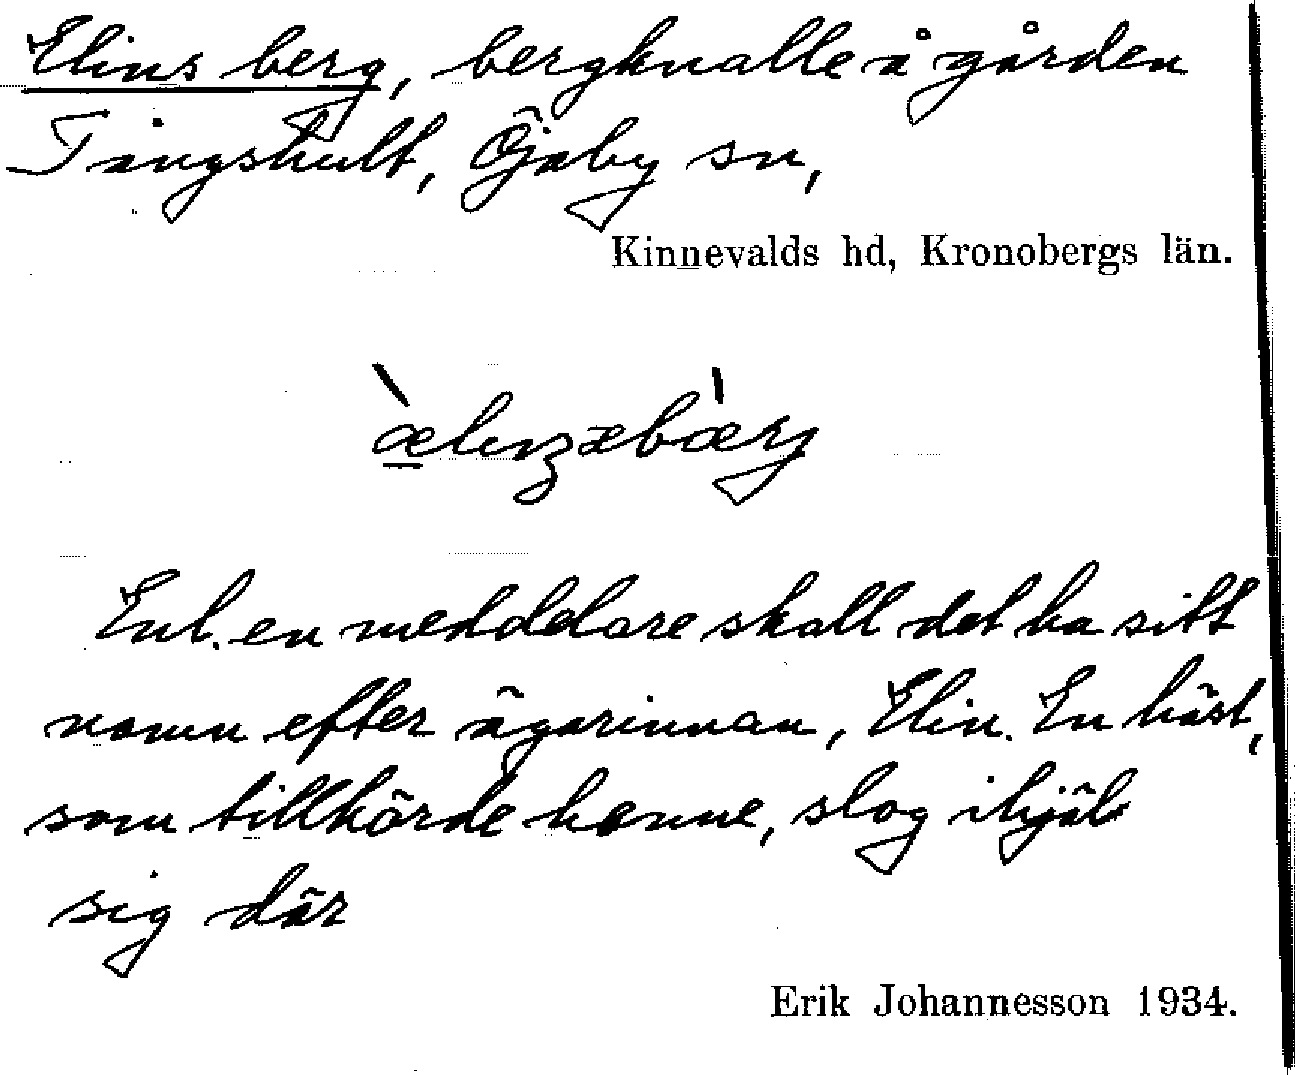 Elins berg, bergknalle å gården
Tängshult, Öjaby sn,
Kinnevalds hd, Kronobergs län.
Enl. en meddelare skall det ha sitt
namn efter ägarinnan, Elin. En häst,
som tillhörde henne, slog ihjäl
sig där
Erik Johannesson 1934.